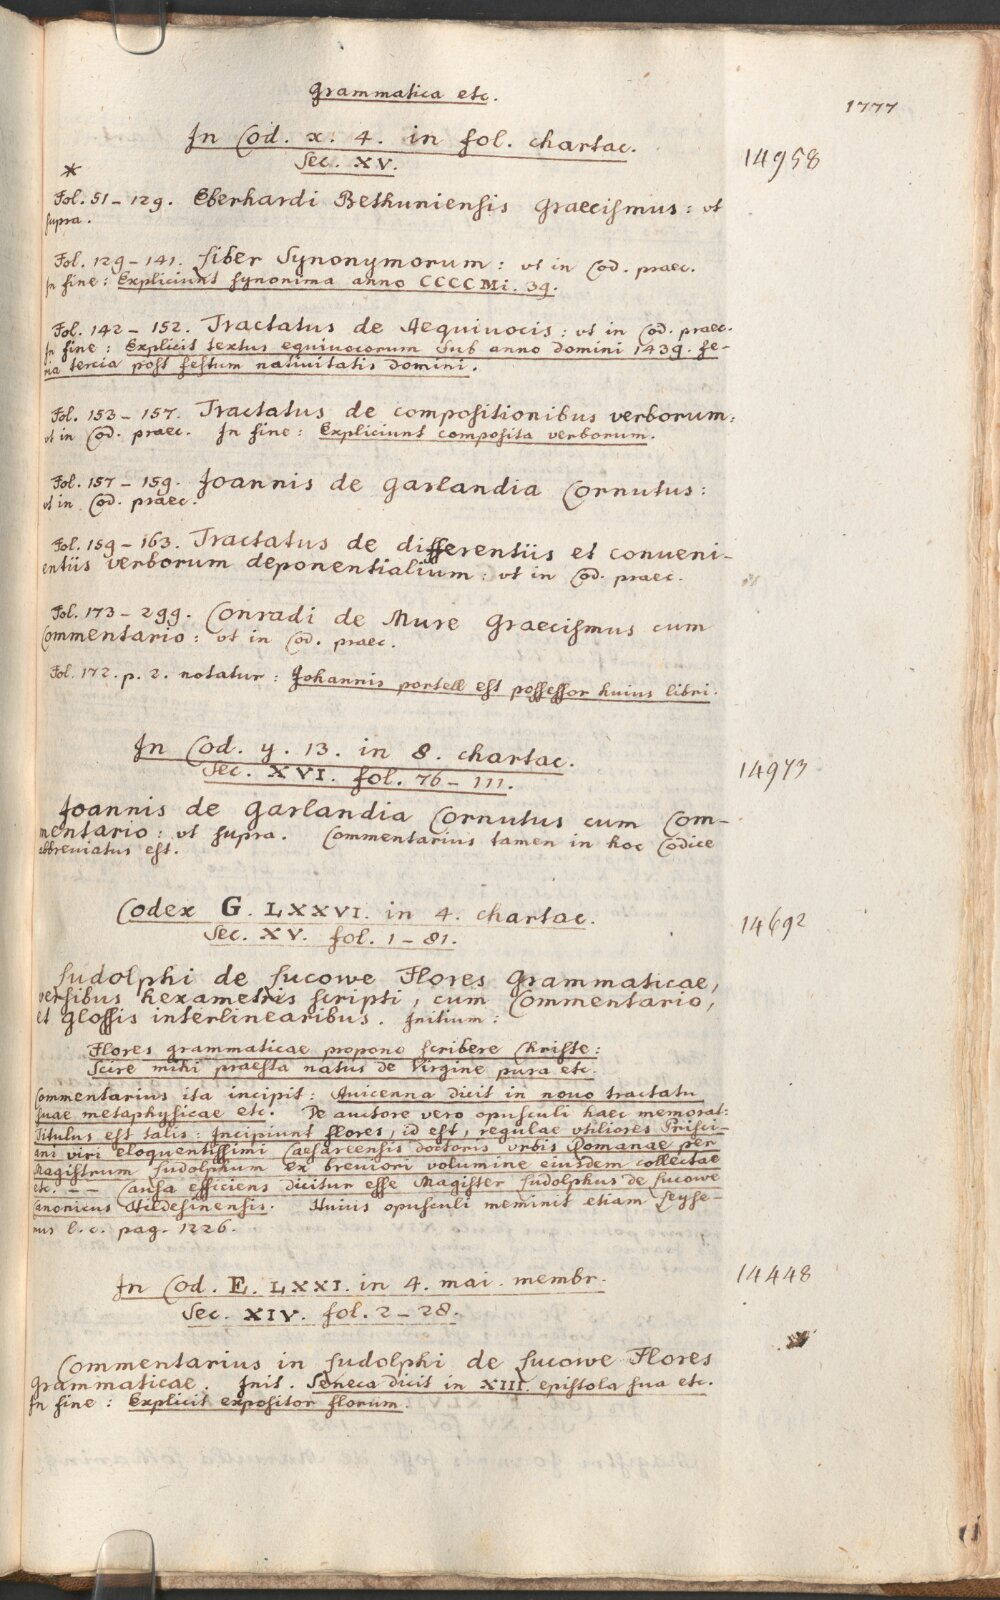 Grammatica etc.
1777
In Cod. x. 4. in fol. chartac.
14958
Sec. XV.
*
Fol. 51 – 129. Eberhardi Bethuniensis Graecismus: vt
supra.
Fol. 129 – 141. Liber Synonymorum: vt in Cod. praec.
In fine: Expliciunt synonima anno CCCC Mi. 39.
Fol. 142 – 152. Tractatus de Aequiuocis: vt in Cod. praec.
In fine: Explicit textus equiuocorum sub anno domini 1439. fe-
ria tercia post festum natiuitatis domini.
Fol. 153 – 157. Tractatus de compositionibus verborum:
vt in Cod. praec. In fine: Expliciunt composita verborum.
Fol. 157 – 159. Joannis de Garlandia Cornutus:
vt in Cod. praec.
Fol. 159 – 163. Tractatus de differentiis et conueni-
entiis verborum deponentialium: vt in Cod. praec.
Fol. 173 – 299. Conradi de Mure Graecismus cum
Commentario: vt in Cod. praec.
Fol. 172. p. 2. notatur: Johannis portell est possessor huius libri.
In Cod. y. 13. in 8. chartac.
14973
Sec. XVI. fol. 76 – 111.
Joannis de Garlandia Cornutus cum Com-
mentario: vt supra. Commentarius tamen in hoc Codice
abbreuiatus est.
Codex G. LXXVI. in 4. chartac.
14692
Sec. XV. fol. 1 – 81.
Ludolphi de Lucowe Flores Grammaticae,
versibus hexametris scripti, cum Commentario,
et glossis interlinearibus. Initium:
Flores grammaticae propono scribere Christe:
Scire mihi praesta natus de Virgine pura etc.
Commentarius ita incipit: Auicenna dicit in nouo tractatu
suae metaphysicae etc. De auctore vero opusculi haec memorat:
Titulus est talis: Incipiunt flores, id est, regulae vtiliores Prisci-
ani viri eloquentissimi Caesarcensis doctoris vrbis Romanae per
Magistrum Ludolphum ex breuiori volumine eiusdem collectae
etc. – – Causa efficiens dicitur esse Magister Ludolphus de Lucowe
Canonicus Hildesinensis. Huius opusculi meminit etiam Leyse-
rus l. c. pag. 1226.
In Cod. E. LXXI. in 4. mai. membr.
14448
Sec. XIV. fol. 2 – 28.
Commentarius in Ludolphi de Lucowe Flores
Grammaticae. Init. Seneca dicit in XIII. epistola sua etc.
In fine: Explicit expositor florum.